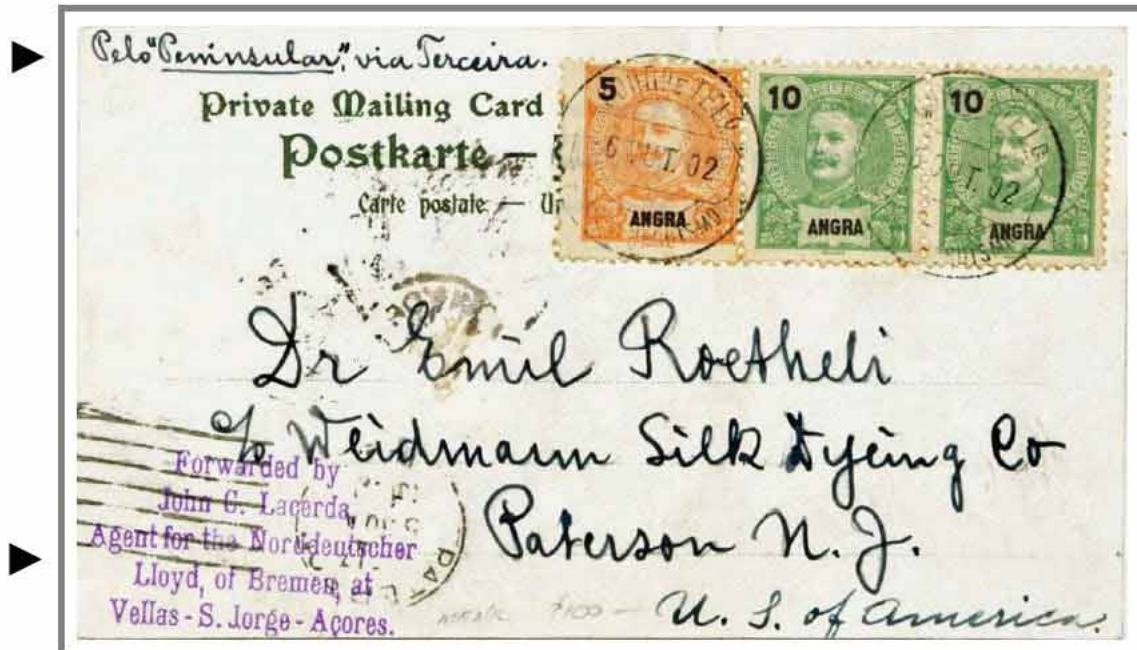 Pelo "Peninsular", via Terceira.
Private Mailing Card
Postkarte —
Carte postale —
5
ANGRA
10
ANGRA
10
ANGRA
6 OUT. 02
T. 02
Dr Emil Roetheli
c/o Weidmann Silk Dyeing Co
Paterson N. J.
U. S. of America.
Forwarded by
John C. Lacerda,
Agent for the Norddeutscher
Lloyd, of Bremen, at
Vellas - S. Jorge - Açores.